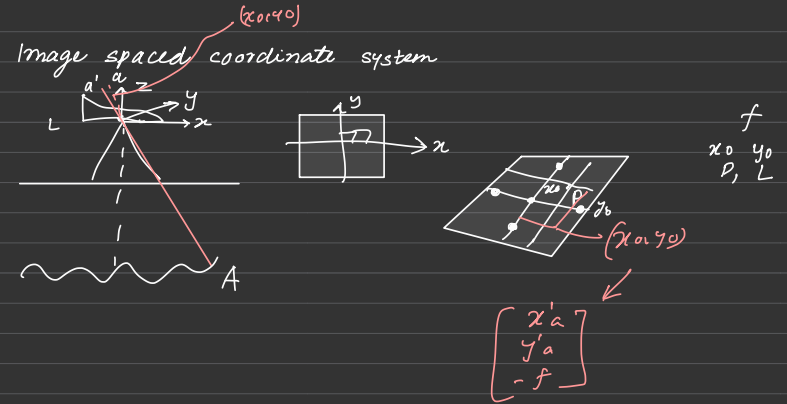 (x0,y0)
Image spaced coordinate system
a' a z
y
L x
A
y
x
f
x0 y0
P, L
x0 P
y0
(x0,y0)
x'a
y'a
-f